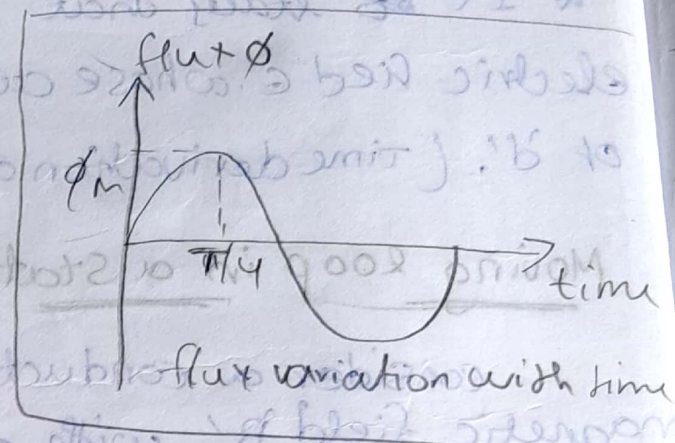 flux ϕ
ϕm
π/4
time
flux variation with time